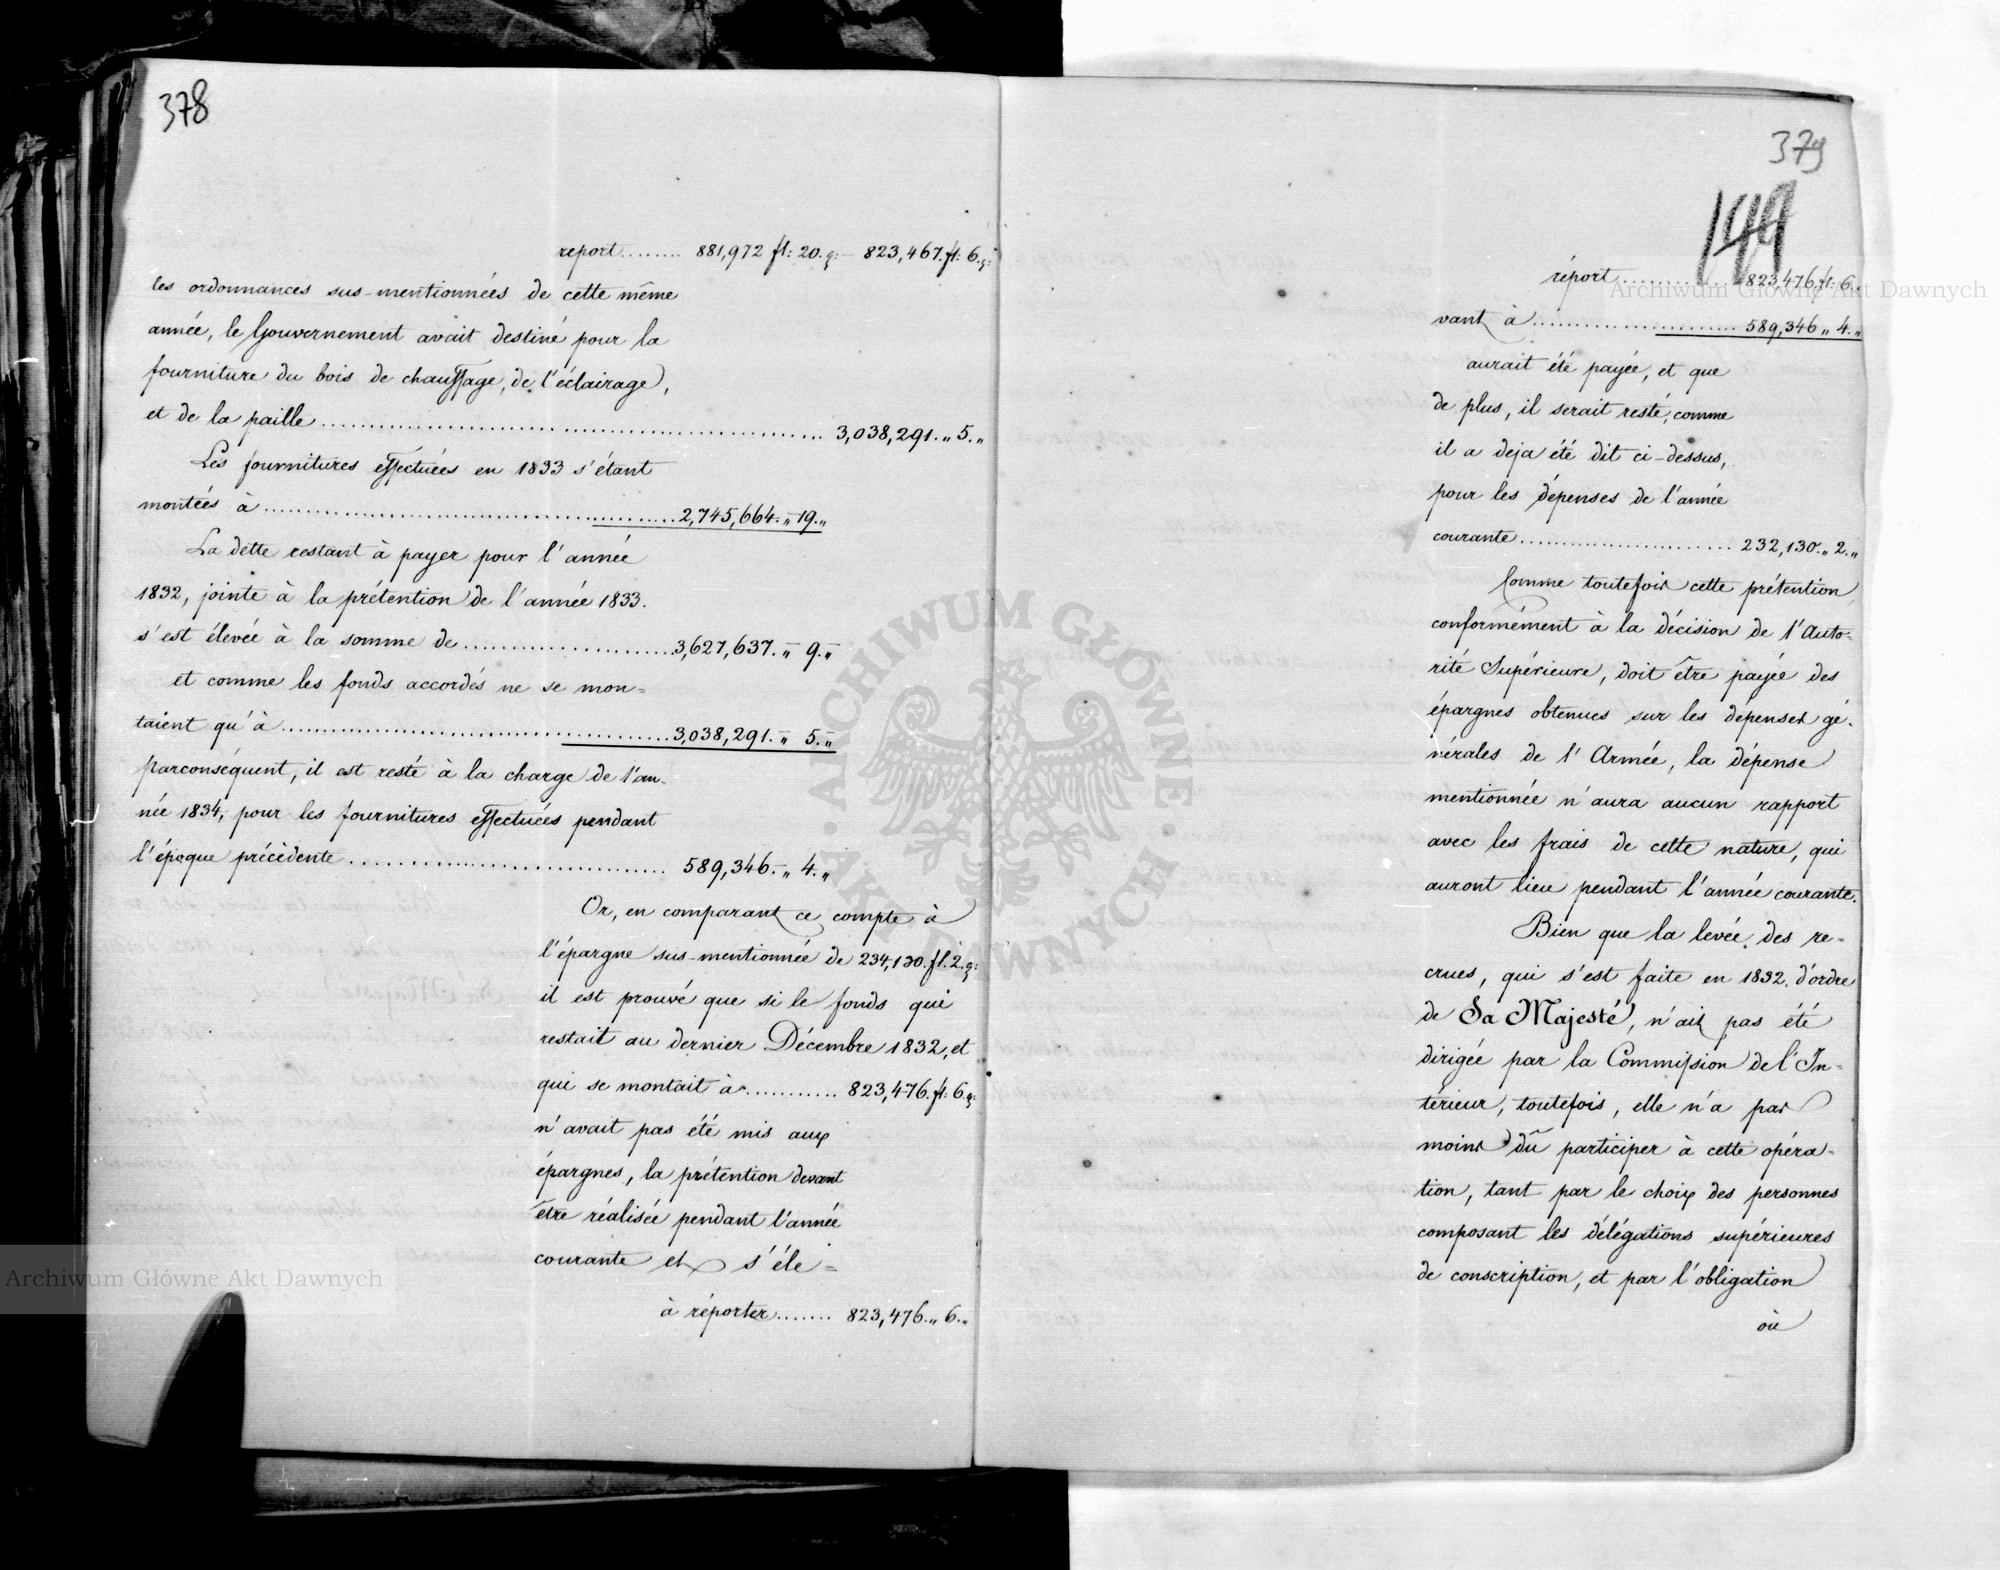 378
report........ 881,972 fl: 20. g: — 823,467. fl: 6. g:
les ordonnances sus-mentionnéés de cette même
année, le Gouvernement avait destiné pour la
fourniture du bois de chauffage, de l'éclairage,
et de la paille ........ 3,038,291. „ 5. „
Les fournitures effectuées en 1833 s'étant
montéés à ........ 2,745,664. „ 19. „
La dette restant à payer pour l'année
1832, jointe à la prétention de l'année 1833.
s'est élevéé à la somme de ........ 3,627,637. „ 9. „
et comme les fonds accordés ne se mon=
taient qu'à ........ 3,038,291. „ 5. „
parconséquent, il est resté à la charge de l'an-
née 1834, pour les fournitures effectuéés pendant
l'époque précédente ........ 589,346. „ 4. „
Or, en comparant ce compte à
l'épargne sus-mentionnée de 234,130. fl. 2. g:
il est prouvé que si le fonds qui
restait au dernier Décembre 1832, et
qui se montait à ........ 823,476. fl: 6. g:
n'avait pas été mis aux
épargnes, la prétention devant
être réalisée pendant l'année
courante et s'éle=
à réporter ....... 823,476. „ 6. „
379
149
réport ........ 823,476 fl: 6.
vant à ........ 589,346 „ 4. „
aurait été payéé, et que
de plus, il serait resté, comme
il a deja été dit ci-dessus,
pour les dépenses de l'année
courante ........ 232,130. „ 2. „
Comme toutefois cette prétention
conformément à la décision de l'Auto-
rité Supérieure, doit être payéé des
épargnes obtenues sur les dépenses gé-
nérales de l'Armée, la dépense
mentionnée n'aura aucun rapport
avec les frais de cette nature, qui
auront lieu pendant l'année courante.
Bien que la levée des re-
crues, qui s'est faite en 1832. d'ordre
de Sa Majesté, n'ait pas été
dirigée par la Commission de l'In-
térieur, toutefois, elle n'a pas
moins dû participer à cette opéra-
tion, tant par le choix des personnes
composant les délégations supérieures
de conscription, et par l'obligation
où
Archiwum Główne Akt Dawnych
Archiwum Główne Akt Dawnych
ARCHIWUM GŁÓWNE AKT DAWNYCH